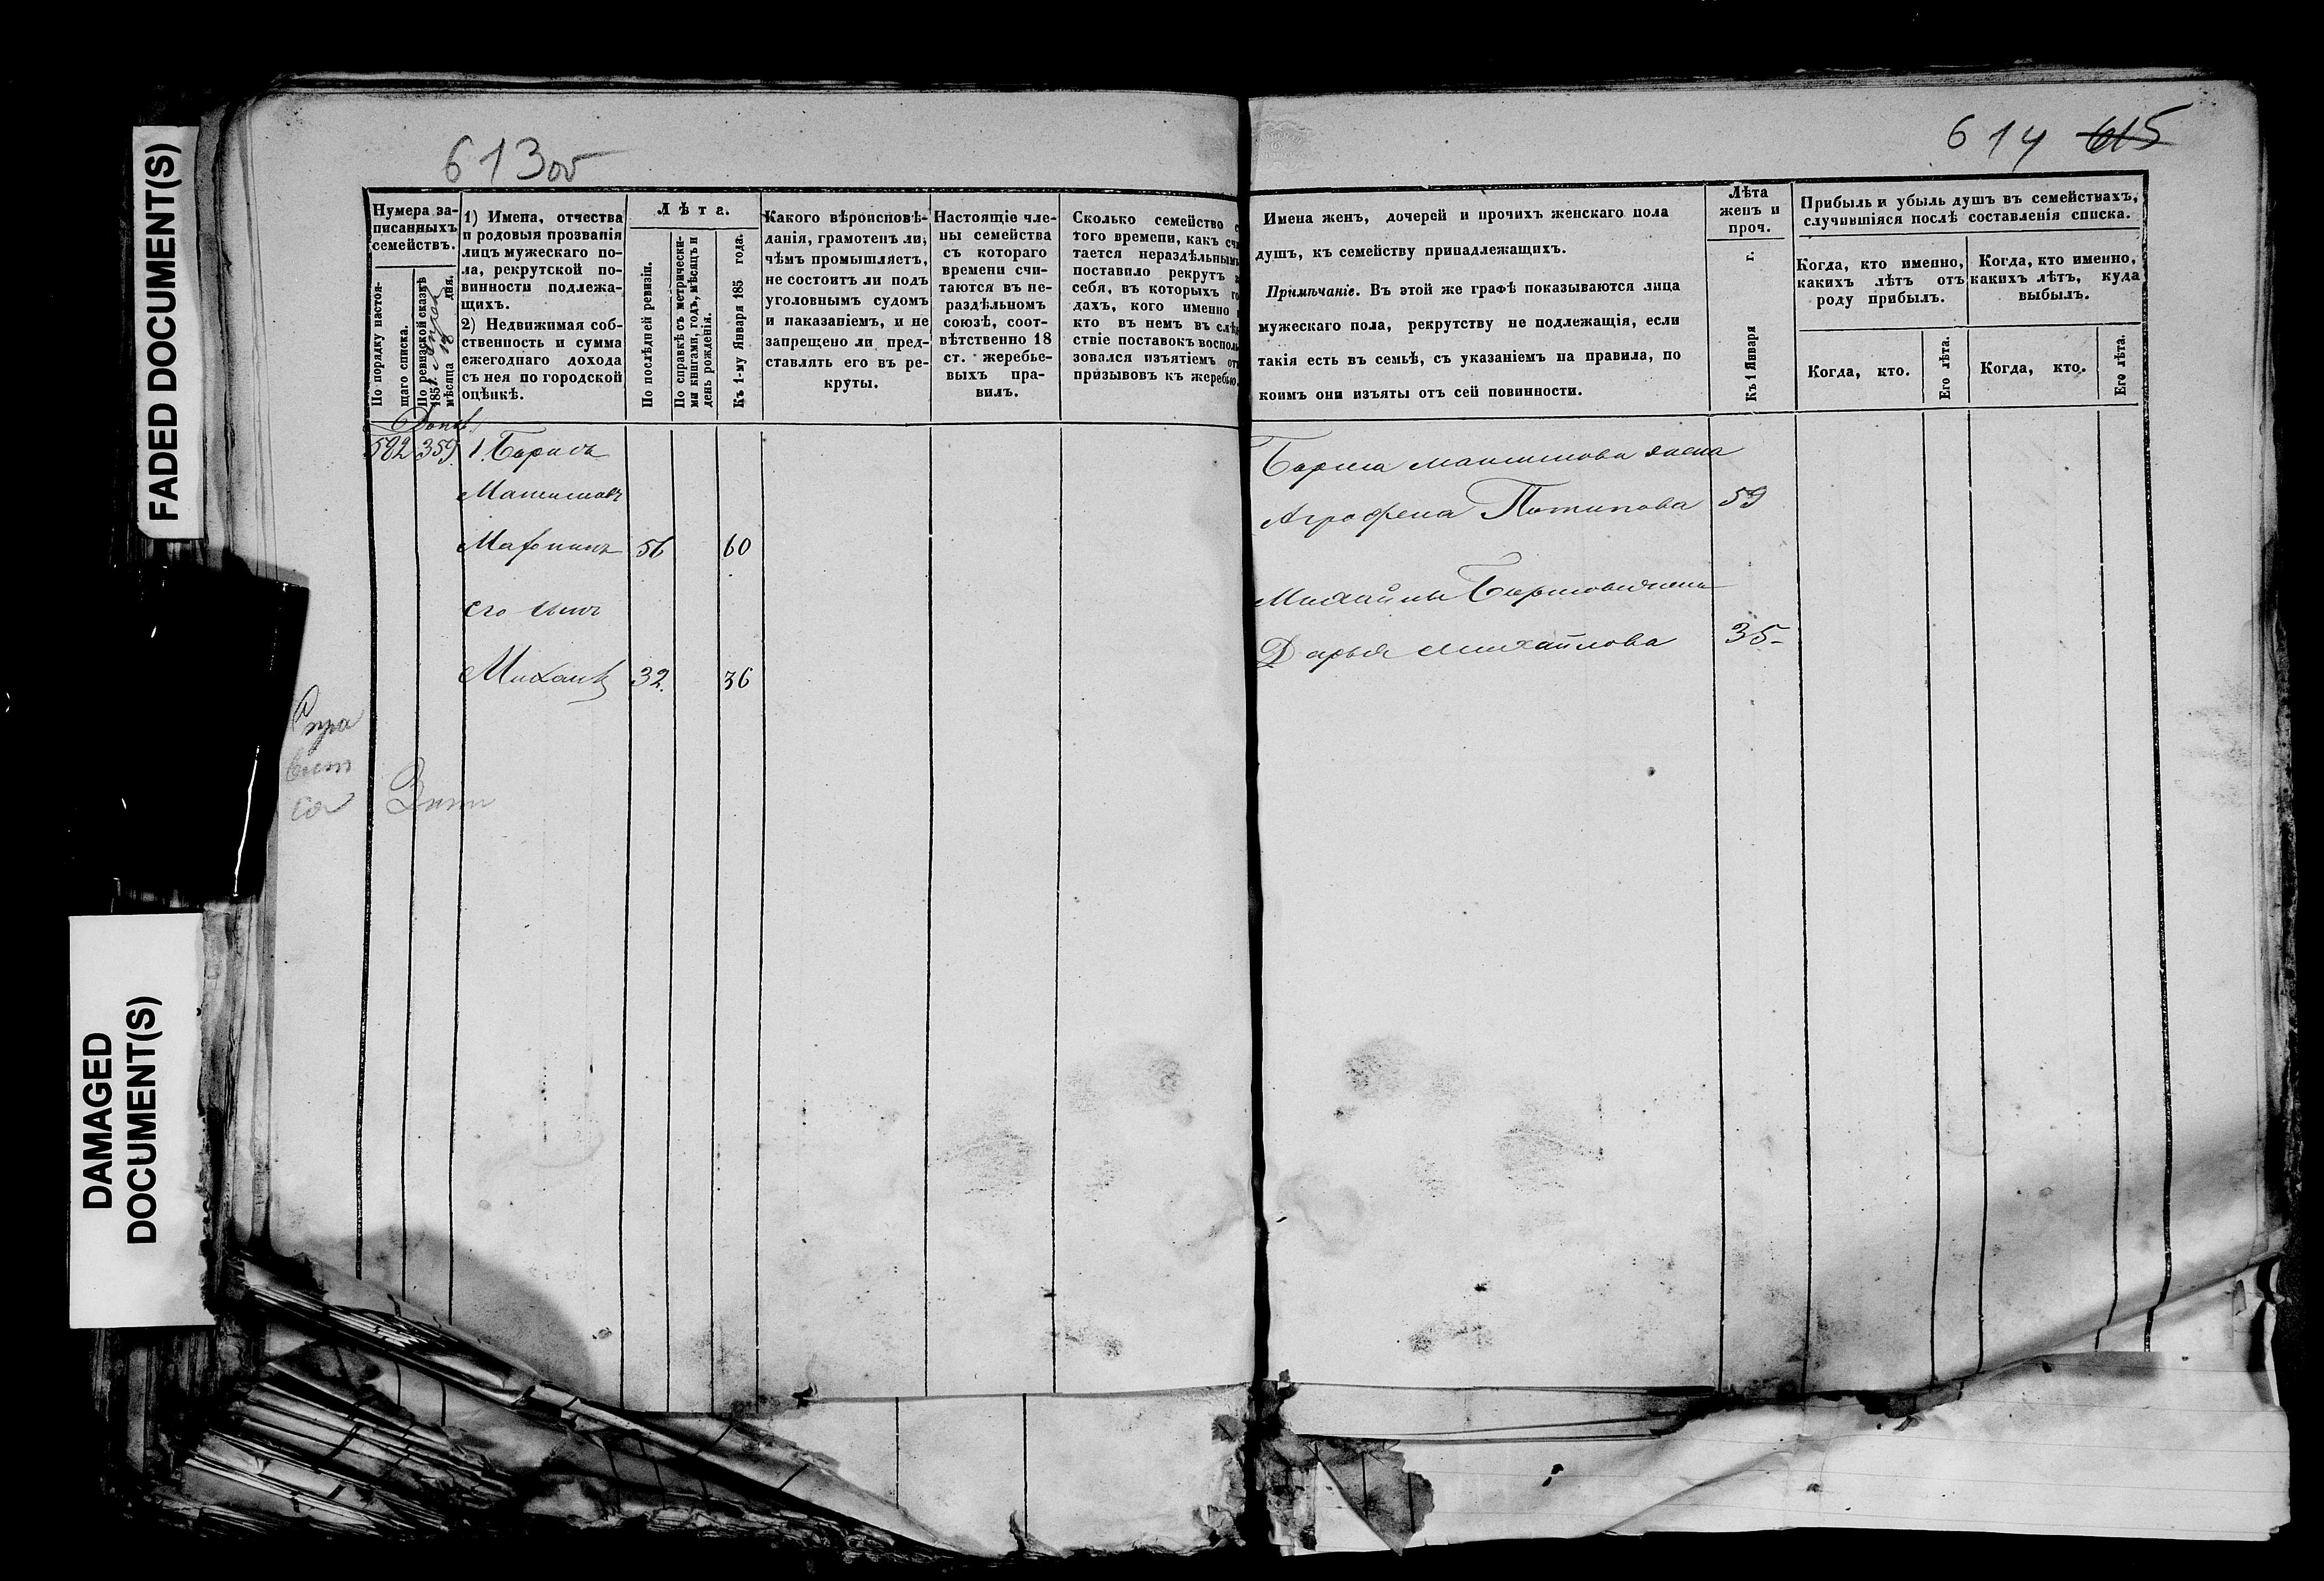 FADED DOCUMENT(S)
DAMAGED
DOCUMENT(S)
613об
Нумера за-
писанныхъ
семействъ.
По порядку настоя-
щаго списка.
По ревизской сказкѣ
185
мѣсяца 18 дня.
1) Имена, отчества
и родовыя прозванія
лицъ мужескаго по-
ла, рекрутской по-
винности подлежа-
щихъ.
2) Недвижимая соб-
ственность и сумма
ежегоднаго дохода
съ нея по городской
оцѣнкѣ.
Лѣта.
По послѣдней ревизіи.
По справкѣ съ метрически-
ми книгами, годъ, мѣсяцъ и
день рожденія.
Къ 1-му Января 185 года.
Какого вѣроисповѣ-
данія, грамотенъ ли,
чѣмъ промышляетъ,
не состоитъ ли подъ
уголовнымъ судомъ
и наказаніемъ, и не
запрещено ли пред-
ставлять его въ ре-
круты.
Настоящіе чле-
ны семейства
съ котораго
времени счи-
таются въ не-
раздѣльномъ
союзѣ, соот-
вѣтственно 18
ст. жеребье-
выхъ пра-
вилъ.
Сколько семейство с
того времени, какъ счи
тается нераздѣльнымъ
поставило рекрутъ з
себя, въ которыхъ го
дахъ, кого именно и
кто въ немъ въ слѣд
ствіе поставокъ восполь
зовался изъятіемъ отъ
призывовъ къ жеребью.
592 359. 1. Борисъ
Максимовъ
56 60
его сынъ
Михаилъ 32. 36
614 615
Имена женъ, дочерей и прочихъ женскаго пола
душъ, къ семейству принадлежащихъ.
Примѣчаніе. Въ этой же графѣ показываются лица
мужескаго пола, рекрутству не подлежащія, если
такія есть въ семьѣ, съ указаніемъ на правила, по
коимъ они изъяты отъ сей повинности.
Лѣта
женъ и
проч.
Къ 1 Января г.
Прибыль и убыль душъ въ семействахъ,
случившіяся послѣ составленія списка.
Когда, кто именно,
какихъ лѣтъ отъ
роду прибылъ.
Когда, кто именно,
какихъ лѣтъ, куда
выбылъ.
Когда, кто.
Его лѣта.
Когда, кто.
Его лѣта.
Бориса Максимова жена
Агрофена Потапова 59
Михайлы Борисова жена
Дарья Михайлова 35